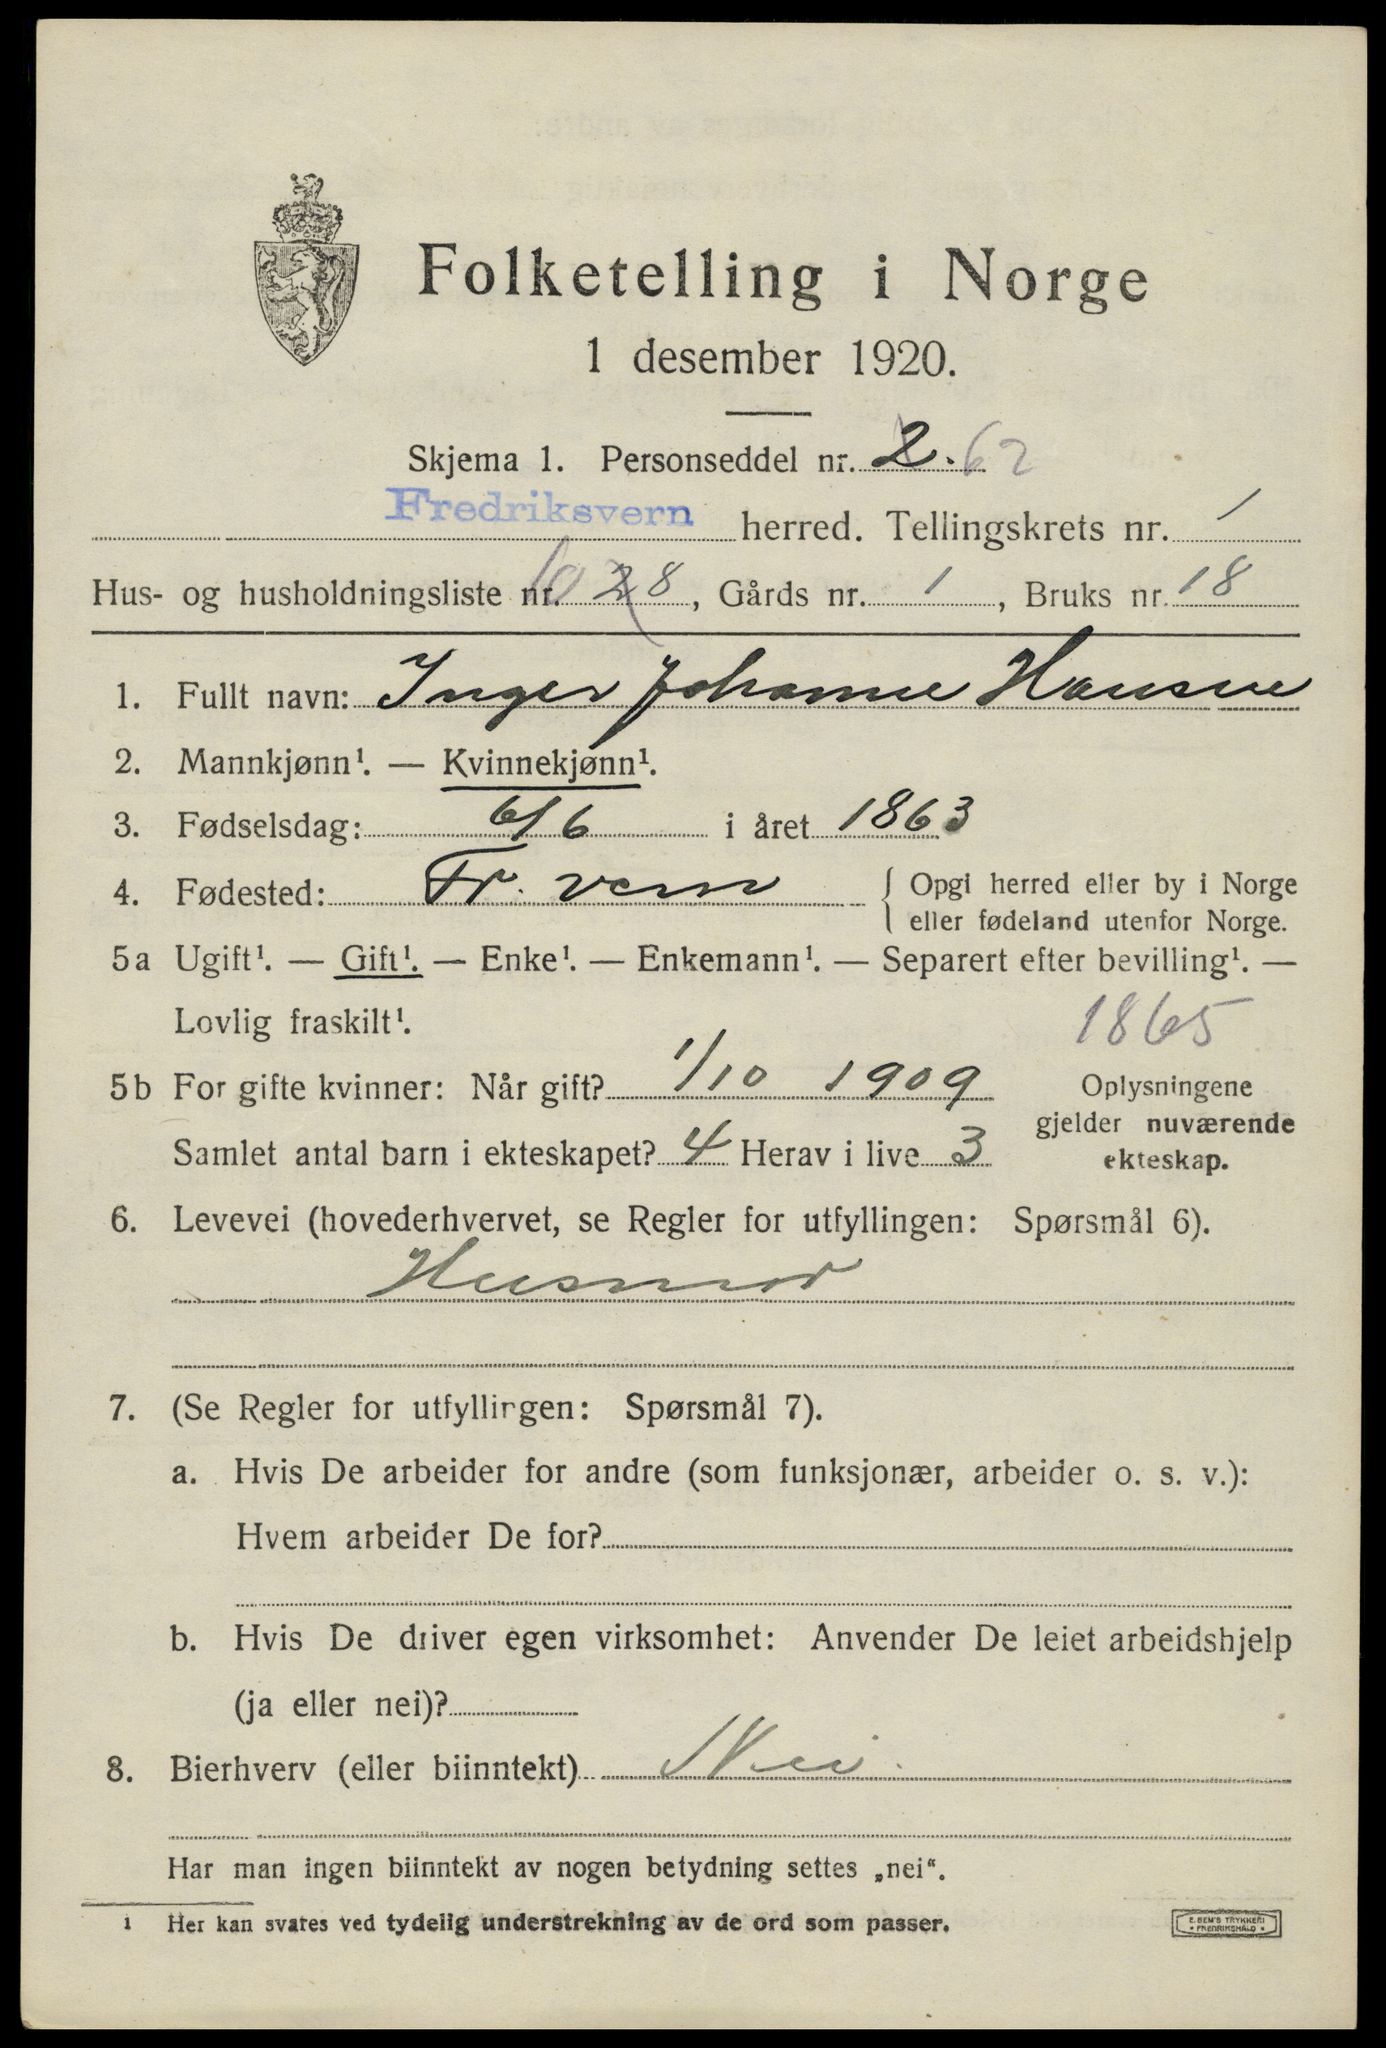 Folketelling i Norge
1 desember 1920.
Skjema 1. Personseddel nr. 2. 62
Fredriksvern herred. Tellingskrets nr. 1
Hus- og husholdningsliste nr. 28, Gårds nr. 1, Bruks nr. 18
1. Fullt navn: Inger Johanne Hansen
2. Mannkjønn¹. — Kvinnekjønn¹.
3. Fødselsdag: 6/6 i året 1863
4. Fødested: Fr. vern { Opgi herred eller by i Norge
eller fødeland utenfor Norge.
5a Ugift¹. — Gift¹. — Enke¹. — Enkemann¹. — Separert efter bevilling¹. —
Lovlig fraskilt¹.
1865
5b For gifte kvinner: Når gift? 1/10 1909
Samlet antal barn i ekteskapet? 4 Herav i live 3
Oplysningene
gjelder nuværende
ekteskap.
6. Levevei (hovederhvervet, se Regler for utfyllingen: Spørsmål 6).
Husmor
7. (Se Regler for utfyllingen: Spørsmål 7).
a. Hvis De arbeider for andre (som funksjonær, arbeider o. s. v.):
Hvem arbeider De for?
b. Hvis De driver egen virksomhet: Anvender De leiet arbeidshjelp
(ja eller nei)?
8. Bierhverv (eller biinntekt) Nei.
Har man ingen biinntekt av nogen betydning settes „nei“.
1 Her kan svares ved tydelig understrekning av de ord som passer.
E. SEM'S TRYKKERI
* FREDRIKSHALD *